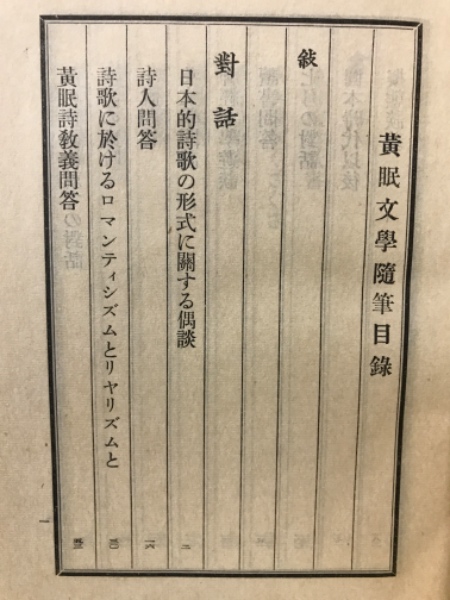 黃眠文學隨筆目錄
敍
對話
日本的詩歌の形式に關する偶談
二
詩人問答
一六
詩歌に於けるロマンティシズムとリヤリズムと
黃眠詩敎義問答
一